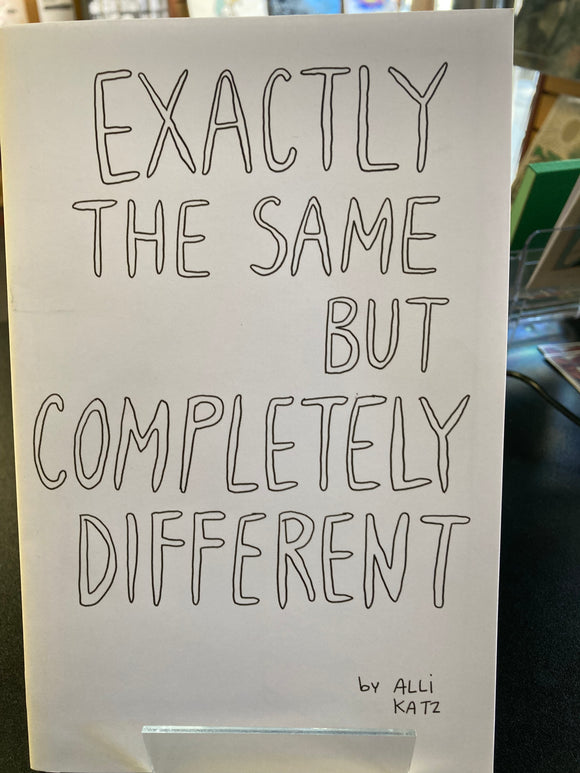 EXACTLY
THE SAME
BUT
COMPLETELY
DIFFERENT
by ALLi
KATZ